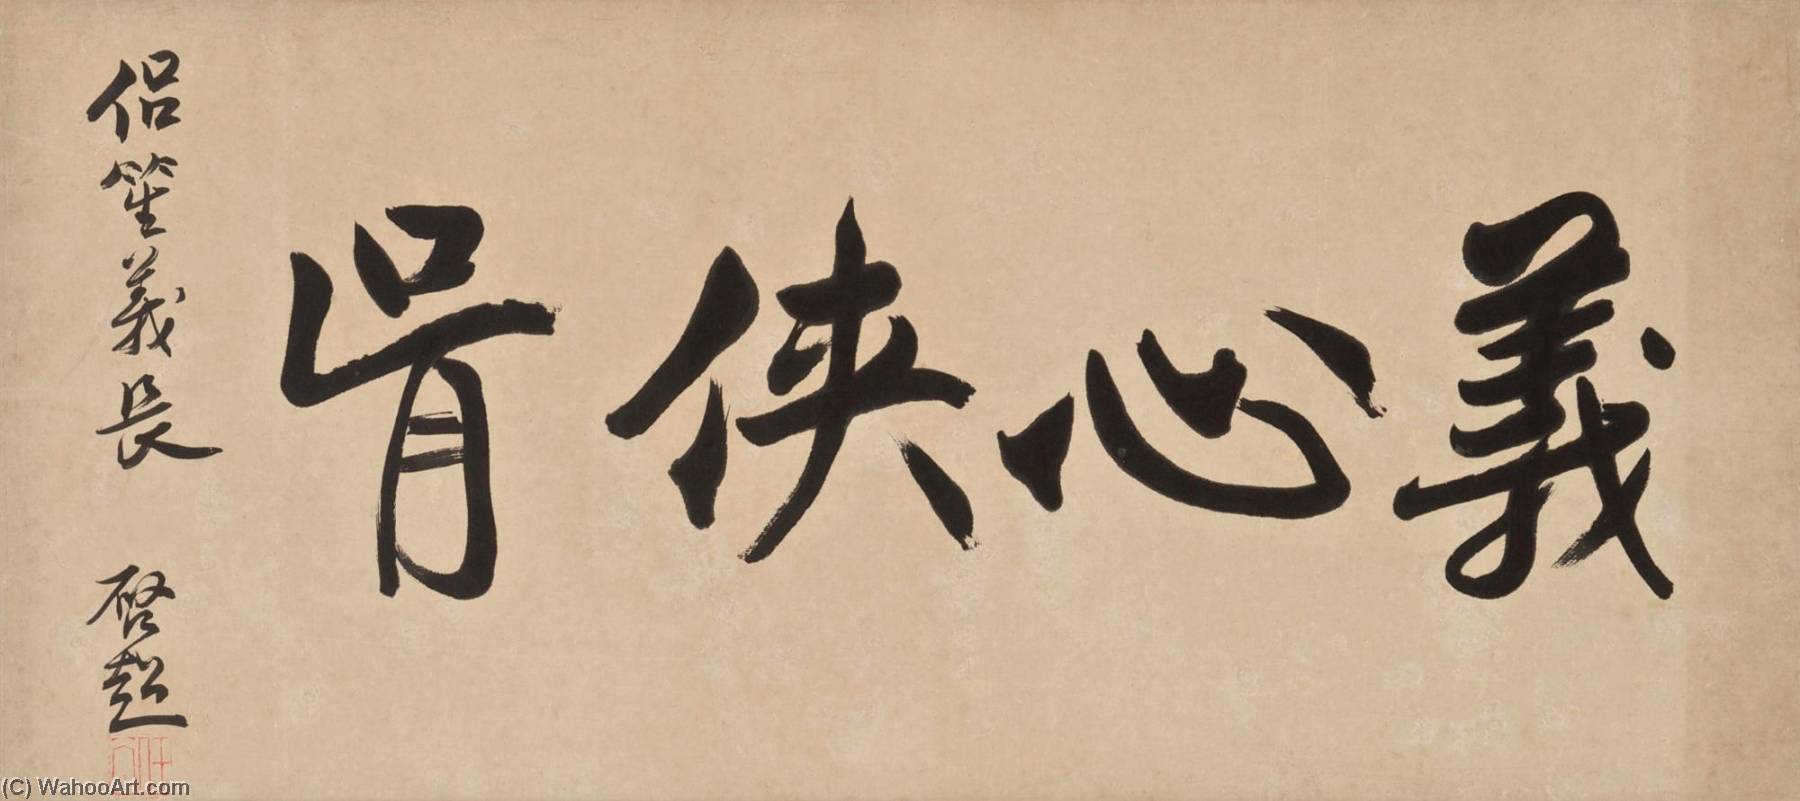 義心俠骨
侶笙義長
啓超
(C) WahooArt.com